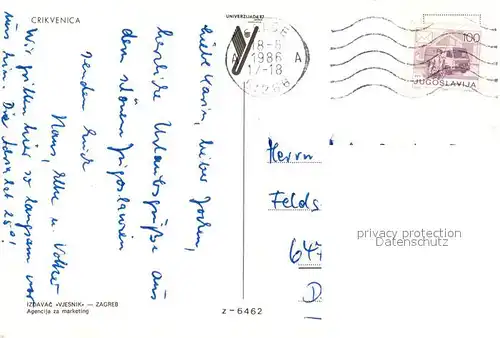 CRIKVENICA
Liebe Karin, lieber Jochen,
herzliche Urlaubsgrüße aus
dem schönen Jugoslawien
senden Euch
Hans, Elke u. Volker
Wir grillen hier so langsam vor
uns hin. Die Adria hat 25°!
IZDAVAČ »VJESNIK« — ZAGREB
Agencija za marketing
z-6462
UNIVERZIJADA 87
18-8
1986
A A
17-18
100
JUGOSLAVIJA
Herrn
Felds
647
D
privacy protection
Datenschutz